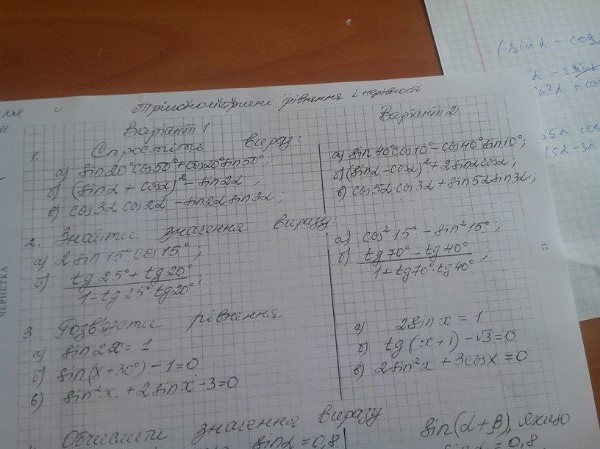 Тригонометричні рівняння і нерівності
Варіант 1
1. Спростить вираз:
а) sin20°cos50°+cos20°sin50°;
б) (sinα + cosα)² - sin2α ;
в) cos3α cos2α - sin2α sin3α ;
2. Знайти значення виразу:
а) 2 sin 15° cos 15° ;
б) (tg 25° + tg 20°)/(1 - tg 25°·tg 20°) ;
3. Розв'язати рівняння
а) sin2x = 1
б) sin(x+30°) - 1 = 0
в) sin²x + 2sinx - 3 = 0
Обчислити значення виразу
sinα = 0,8
Варіант 2
а) sin 40°cos10° - cos40°sin10°;
б) (sinα - cosα)² + 2sinαcosα;
в) cos5α cos3α + sin5α sin3α ;
а) cos²15° - sin²15° ;
б) (tg70° - tg40°)/(1 + tg70°·tg40°) ;
а) 2sin x = 1
б) tg(x+1) - √3 = 0
в) 2sin²x + 3cosx = 0
sin(α+β), якщо
= 0,8